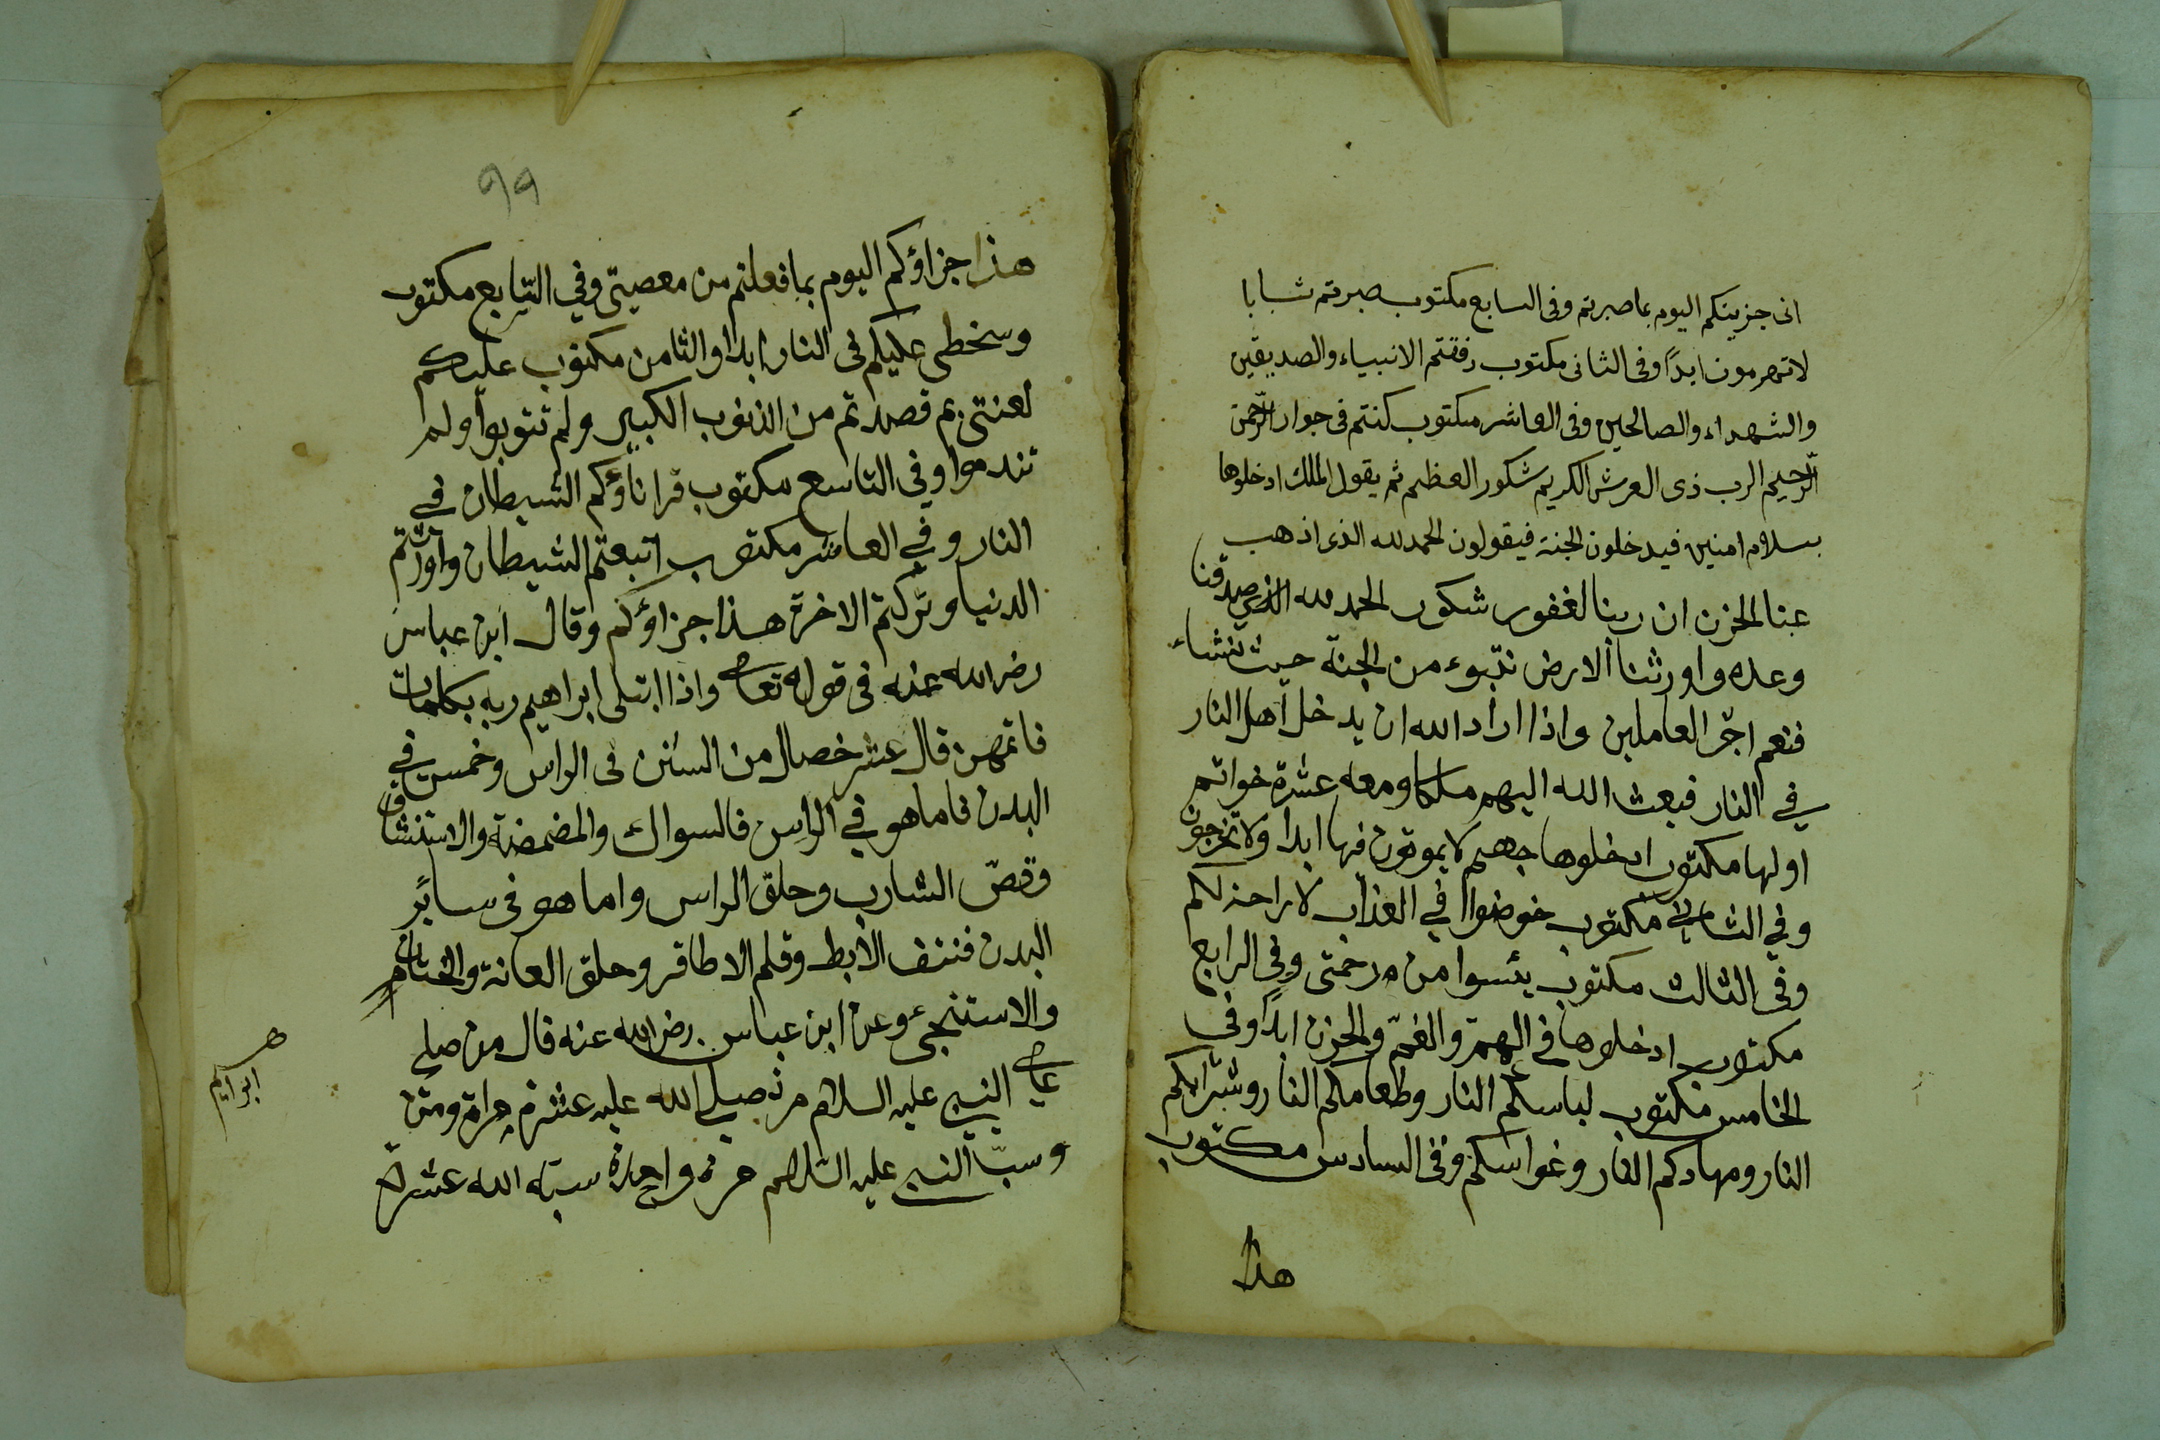 انى جزيتكم اليوم بما صبرتم وفى السابع مكتوب صبرتم شبابا
لا تهرمون ابدًا وفى الثانى مكتوب رفقتم الانبياء والصديقين
والشهداء والصالحين وفى العاشر مكتوب كنتم فى جوار الرّحمن
الرّحيم الرب ذى العرش الكريم شكور العظيم ثم يقول الملك ادخلوها
بسلام امنين فيدخلون الجنة فيقولون الحمد لله الذى اذهب
عنا الحزن ان ربنا لغفور شكور الحمد لله الذى صدقنا
وعده واورثنا الارض نتبوء من الجنّة حيث نشاء
فنعم اجر العاملين واذا اراد الله ان يدخل اهل النار
في النار فبعث الله اليهم ملكا ومعه عشرة خواتم
اولها مكتوب ادخلوها جهنم لا يموتون فيها ابدا ولا تخرجون
وفي الثانى مكتوب خوضوا في العذاب لا راحة لكم
وفى الثالث مكتوب يئسوا من رحمتى وفى الرابع
مكتوب ادخلوها في الهمّ والغمّ والحزن ابدًا وفى
الخامس مكتوب لباسكم النار وطعامكم النار وشرابكم
النار ومهادكم النار وغواشكم وفى السادس مكتوب
هذا
٩٩
هذا جزاؤكم اليوم بما فعلتم من معصيتى وفي السّابع مكتوب
وسخطى عليكم فى النار ابدا والثامن مكتوب عليكم
لعنتى بم قصدتم من الذنوب الكبير ولم تتوبوا ولم
تندموا وفي التاسع مكتوب قرناؤكم الشيطان في
النار وفي العاشر مكتوب اتبعتم الشيطان واورثتم
الدنيا وتركتم الاخرة هذا جزاؤكم وقال ابن عباس
رضى الله عنه فى قوله تعالى واذا ابتلى ابراهيم ربه بكلمات
فاتمهن قال عشر خصال من السنن فى الراس وخمس في
البدن فاما هو في الراس فالسواك والمضمضة والاستنشاق
وقصّ الشارب وحلق الراس واما هو فى سائر
البدن فنتف الابط وقلم الاظافر وحلق العانة والختان
والاستنجى وعن ابن عباس رضى الله عنه قال من صلى
على النبي عليه السلام مرة صلى الله عليه عشرة مراة ومن
وسبّ النبي عليه السّلام مرة واحدة سبّه الله عشرة
ابراهيم